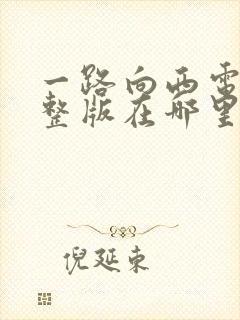 一路向西电
整版在哪里
倪延东